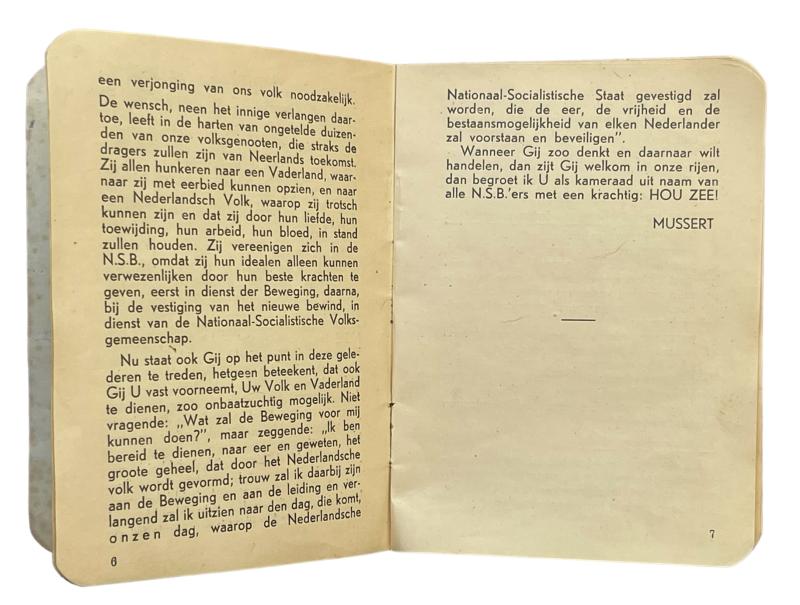 een verjonging van ons volk noodzakelijk.
De wensch, neen het innige verlangen daar-
toe, leeft in de harten van ongetelde duizen-
den van onze volksgenooten, die straks de
dragers zullen zijn van Neerlands toekomst.
Zij allen hunkeren naar een Vaderland, waar-
naar zij met eerbied kunnen opzien, en naar
een Nederlandsch Volk, waarop zij trotsch
kunnen zijn en dat zij door hun liefde, hun
toewijding, hun arbeid, hun bloed, in stand
zullen houden. Zij vereenigen zich in de
N.S.B., omdat zij hun idealen alleen kunnen
verwezenlijken door hun beste krachten te
geven, eerst in dienst der Beweging, daarna,
bij de vestiging van het nieuwe bewind, in
dienst van de Nationaal-Socialistische Volks-
gemeenschap.
Nu staat ook Gij op het punt in deze gele-
deren te treden, hetgeen beteekent, dat ook
Gij U vast voorneemt, Uw Volk en Vaderland
te dienen, zoo onbaatzuchtig mogelijk. Niet
vragende: „Wat zal de Beweging voor mij
kunnen doen?”, maar zeggende: „Ik ben
bereid te dienen, naar eer en geweten, het
groote geheel, dat door het Nederlandsche
volk wordt gevormd; trouw zal ik daarbij zijn
aan de Beweging en aan de leiding en ver-
langend zal ik uitzien naar den dag, die komt,
onzen dag, waarop de Nederlandsche
6
Nationaal-Socialistische Staat gevestigd zal
worden, die de eer, de vrijheid en de
bestaansmogelijkheid van elken Nederlander
zal voorstaan en beveiligen”.
Wanneer Gij zoo denkt en daarnaar wilt
handelen, dan zijt Gij welkom in onze rijen,
dan begroet ik U als kameraad uit naam van
alle N.S.B.'ers met een krachtig: HOU ZEE!
MUSSERT
7